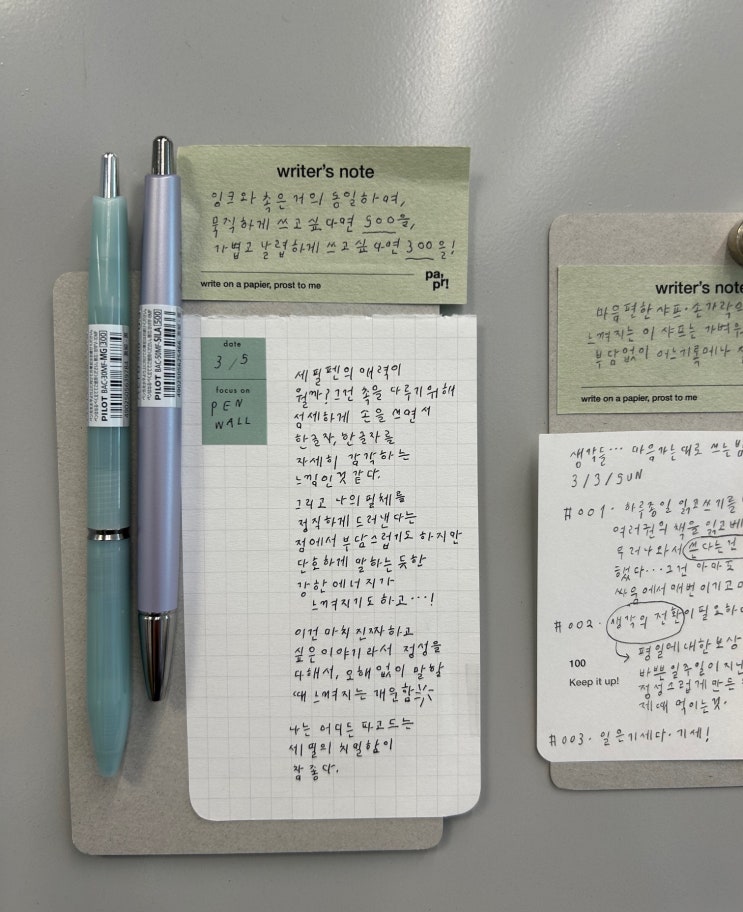 writer's note
잉크와 촉은 거의 동일하며,
묵직하게 쓰고 싶다면 500을,
가볍고 날렵하게 쓰고 싶다면 300을!
write on a papier, prost to me
pa,
pr!
PILOT BAC-30MF-MG[300]
PILOT BAC-50MF-SILA[500]
date
3/5
focus on
PEN
WALL
세필펜의 매력이
뭘까? 그건 촉을 다루기위해
섬세하게 손을 쓰면서
한글자, 한글자를
자세히 감각하는
느낌인것 같다.
그리고 나의 필체를
정직하게 드러낸다는
점에서 부담스럽기도 하지만
단호하게 말하는 듯한
강한 에너지가
느껴지기도 하고···!
이건 마치 진짜하고
싶은 이야기라서 정성을
다해서, 오해 없이 말할
때 느껴지는 개운함
나는 어디든 파고드는
세필의 치밀함이
참 좋다.
writer's note
마음 편한 샤프. 손가락
느껴지는 이 샤프는 가벼워
부담없이 어느기록에나
write on a papier, prost to me
생각들··· 마음가는대로 쓰는
3/3/SUN
#001. 하루종일 읽고쓰기를
여러권의 책을 읽고
루러나와서 쓰다는건
했다···그건 아마도
싸움에서 매번 이기고
#002. 생각의 전환이 필요하
평일에대한 보상
바쁜일주일이 지난
정성스럽게 만든
제때 먹이는것.
100
Keep it up!
#003. 일은기세다. 기세!